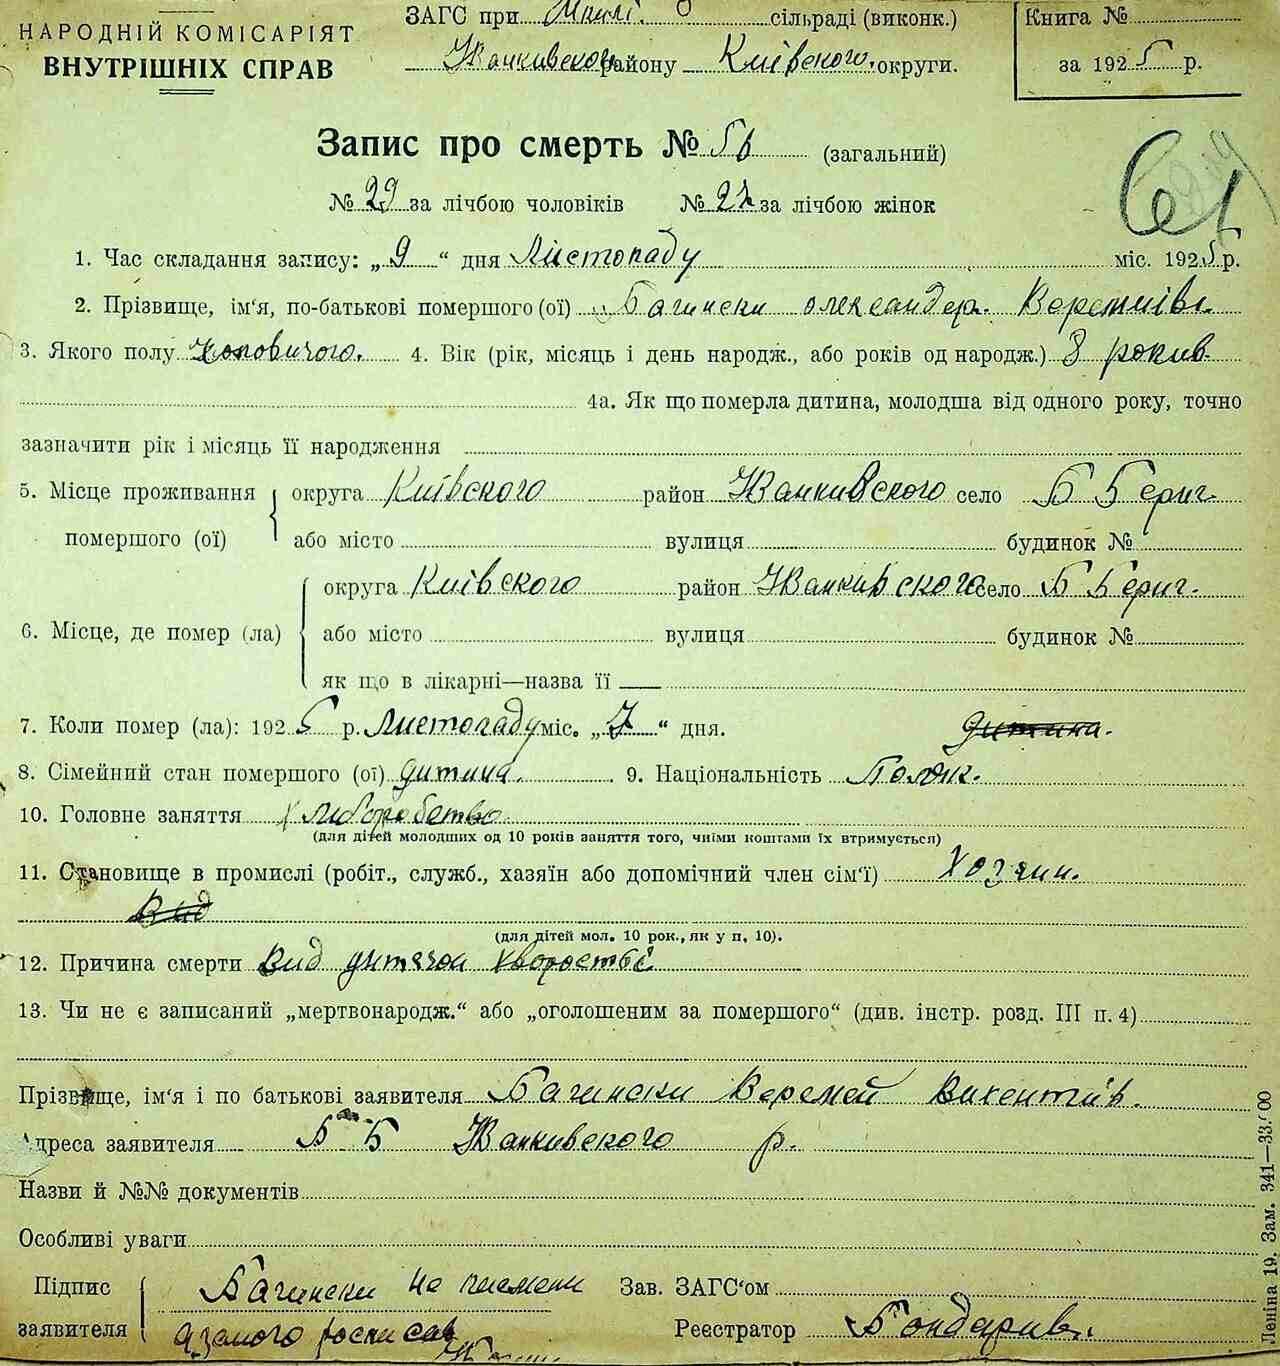 НАРОДНІЙ КОМІСАРІЯТ
ВНУТРІШНІХ СПРАВ
ЗАГС при сільраді (виконк.)
Жванкивського району Київского округи.
Книга №
за 1925 р.
Запис про смерть № 56 (загальний)
№ 29 за лічбою чоловіків № 27 за лічбою жінок
1. Час складання запису: „9“ дня Листопаду міс. 1925 р.
2. Прізвище, ім‘я, по-батькові помершого (ої) Багински олександер.
3. Якого полу 4. Вік (рік, місяць і день народж., або років од народж.) 8 рокив
4а. Як що померла дитина, молодша від одного року, точно
зазначити рік і місяць її народження
5. Місце проживання помершого (ої) округа Київского район Жванкивского село Б Бериг.
або місто вулиця будинок №
6. Місце, де помер (ла) округа Київского район Жванкивского село Б Бериг.
або місто вулиця будинок №
як що в лікарні—назва її
7. Коли помер (ла): 1925 р. Листопаду міс. „7“ дня. дитина.
8. Сімейний стан помершого (ої) дитина. 9. Національність Поляк.
10. Головне заняття хлиборобство
(для дітей молодших од 10 років заняття того, чиїми коштами їх втримується)
11. Становище в промислі (робіт., служб., хазяїн або допомічний член сім‘ї) Хозяин.
Вид
(для дітей мол. 10 рок., як у п, 10).
12. Причина смерти Вид дитячои
13. Чи не є записаний „мертвонародж.“ або „оголошеним за помершого“ (див. інстр. розд. III п. 4)
Прізвище, ім‘я і по батькові заявителя Багински Веремей Викентиїв.
Адреса заявителя Б Б Жванкивского р.
Назви й №№ документів
Особливі уваги
Підпис заявителя Багински не писмени
а замого росписав
Зав. ЗАГС‘ом
Реєстратор Бондарив.
Леніна 19. Зам. 341—33.